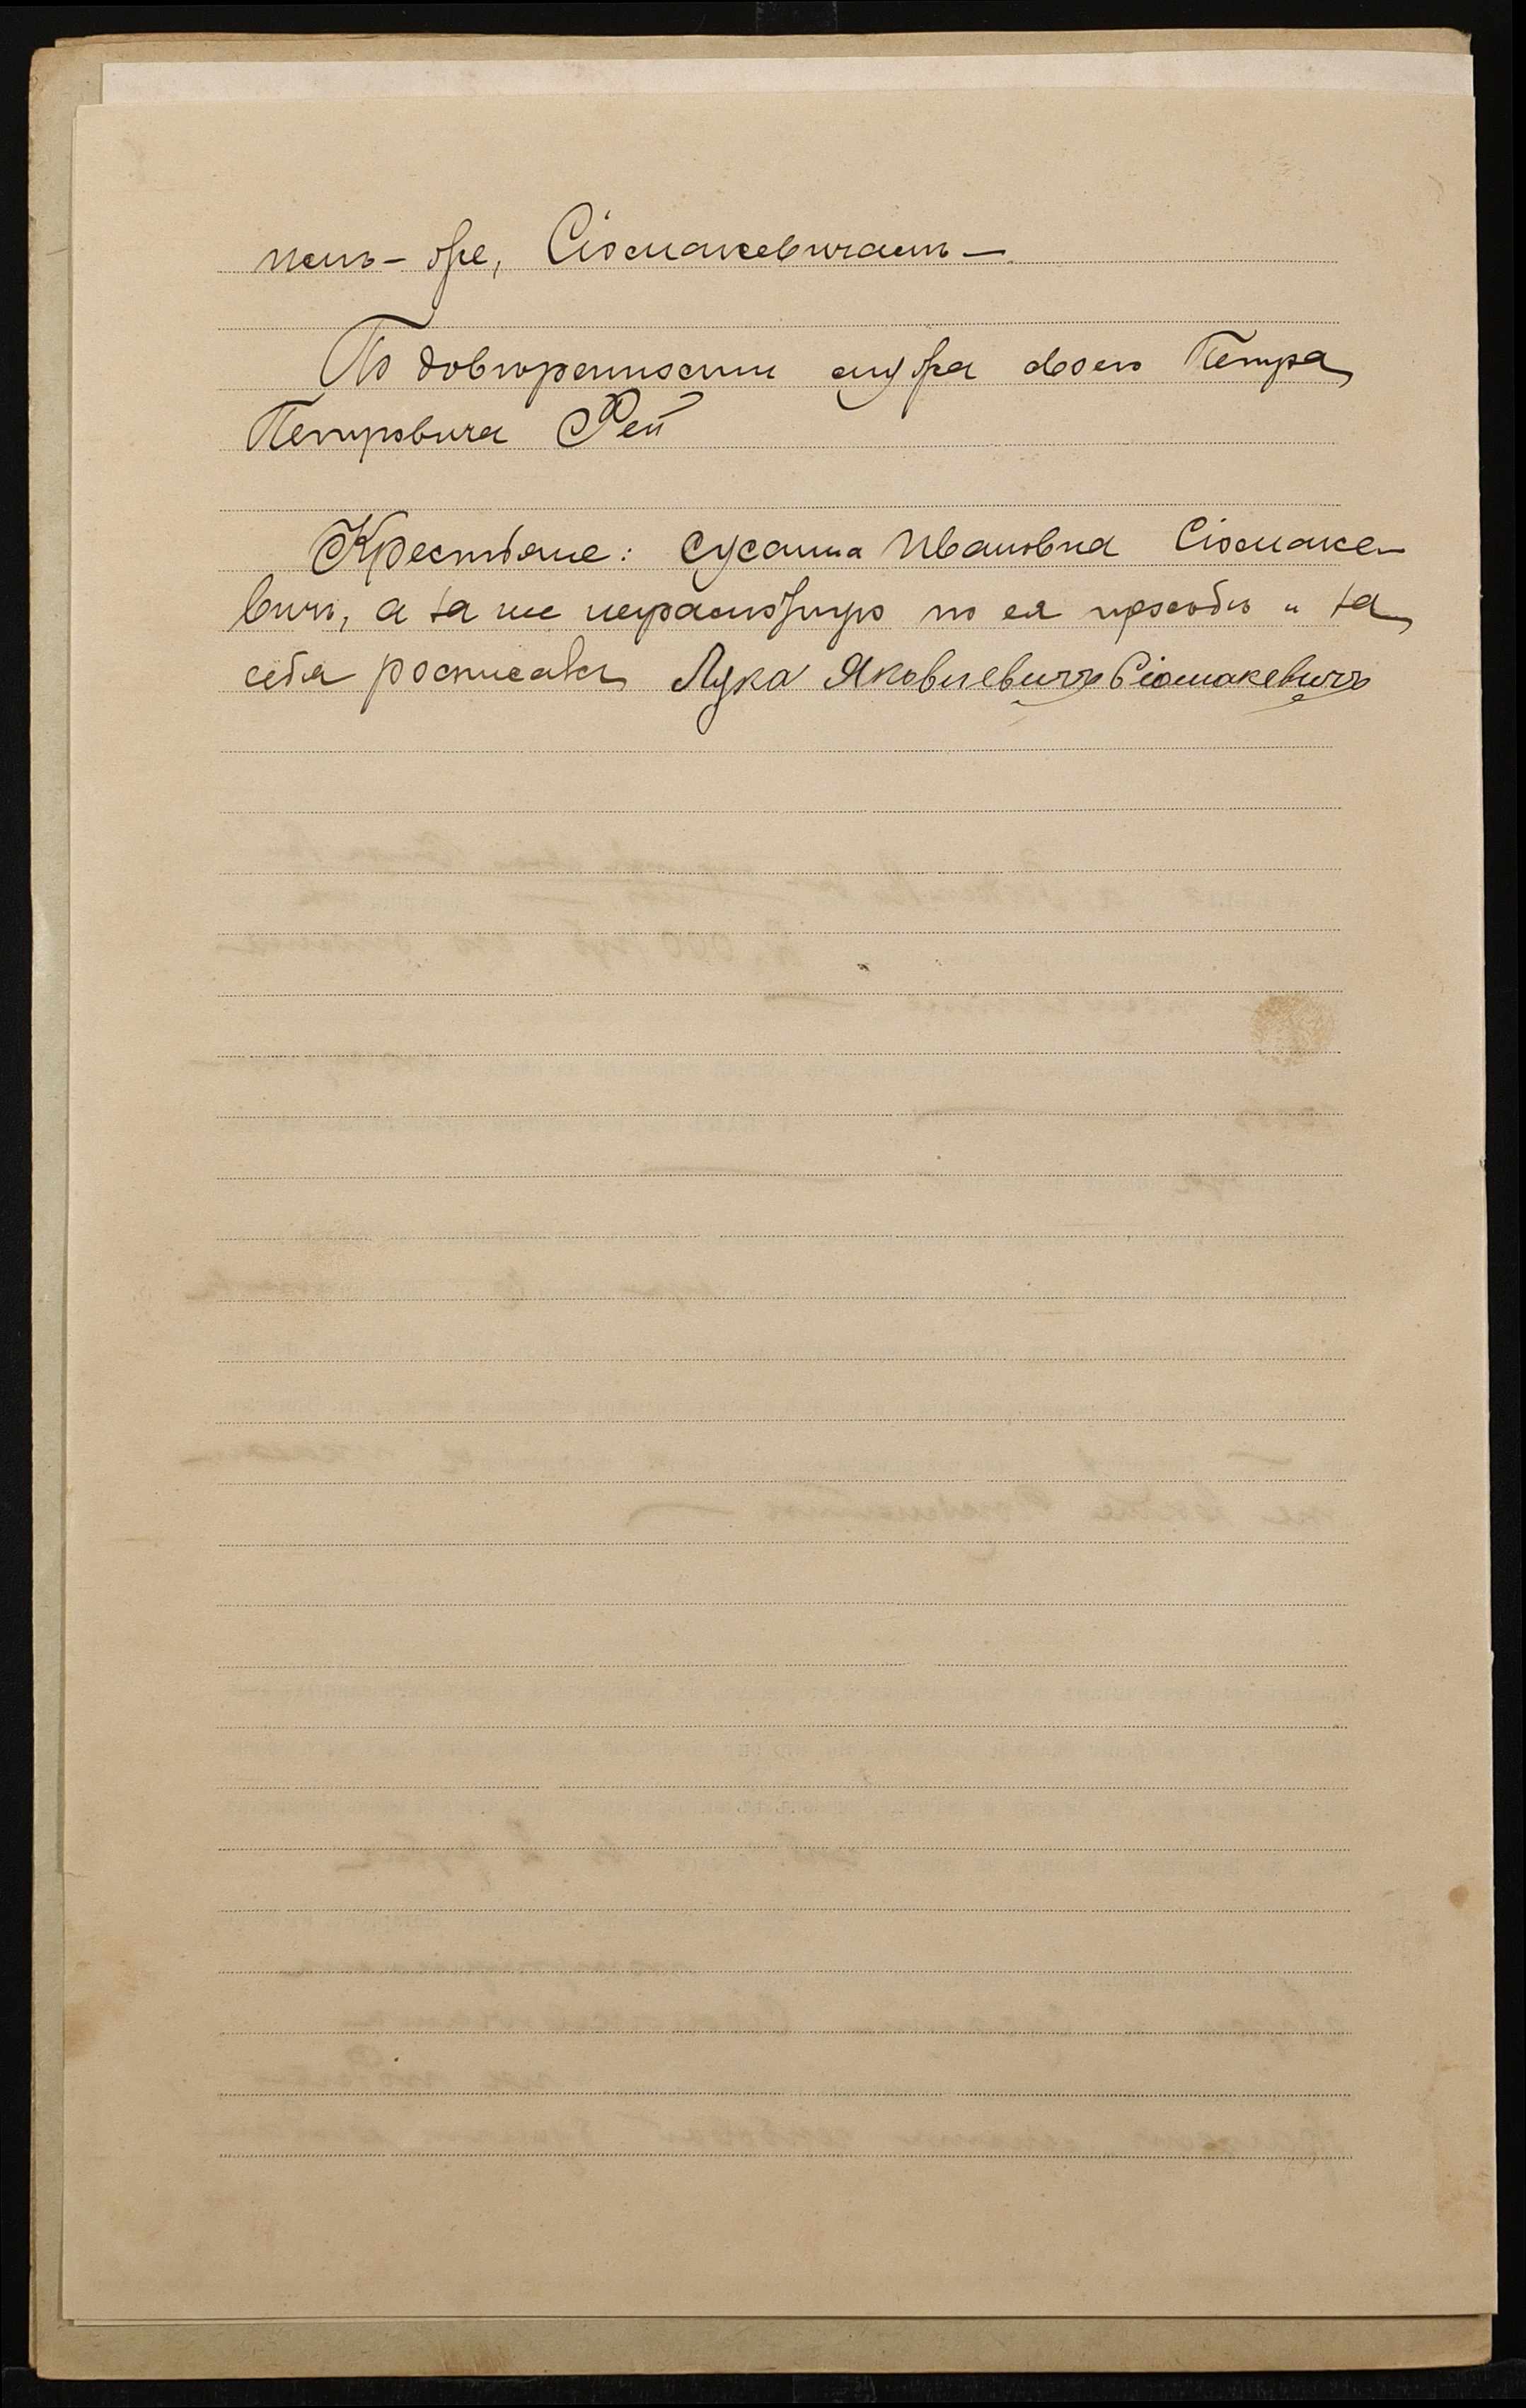 имъ-же, Сіомакевичамъ —
По довѣренности мужа своего Петра
Петровича Рей
Крестьяне: Сусанна Ивановна Сіомаке-
вичъ, а за нее неграмотную по ея просьбѣ и за
себя росписался Лука Яковлевичъ Сіомакевичъ